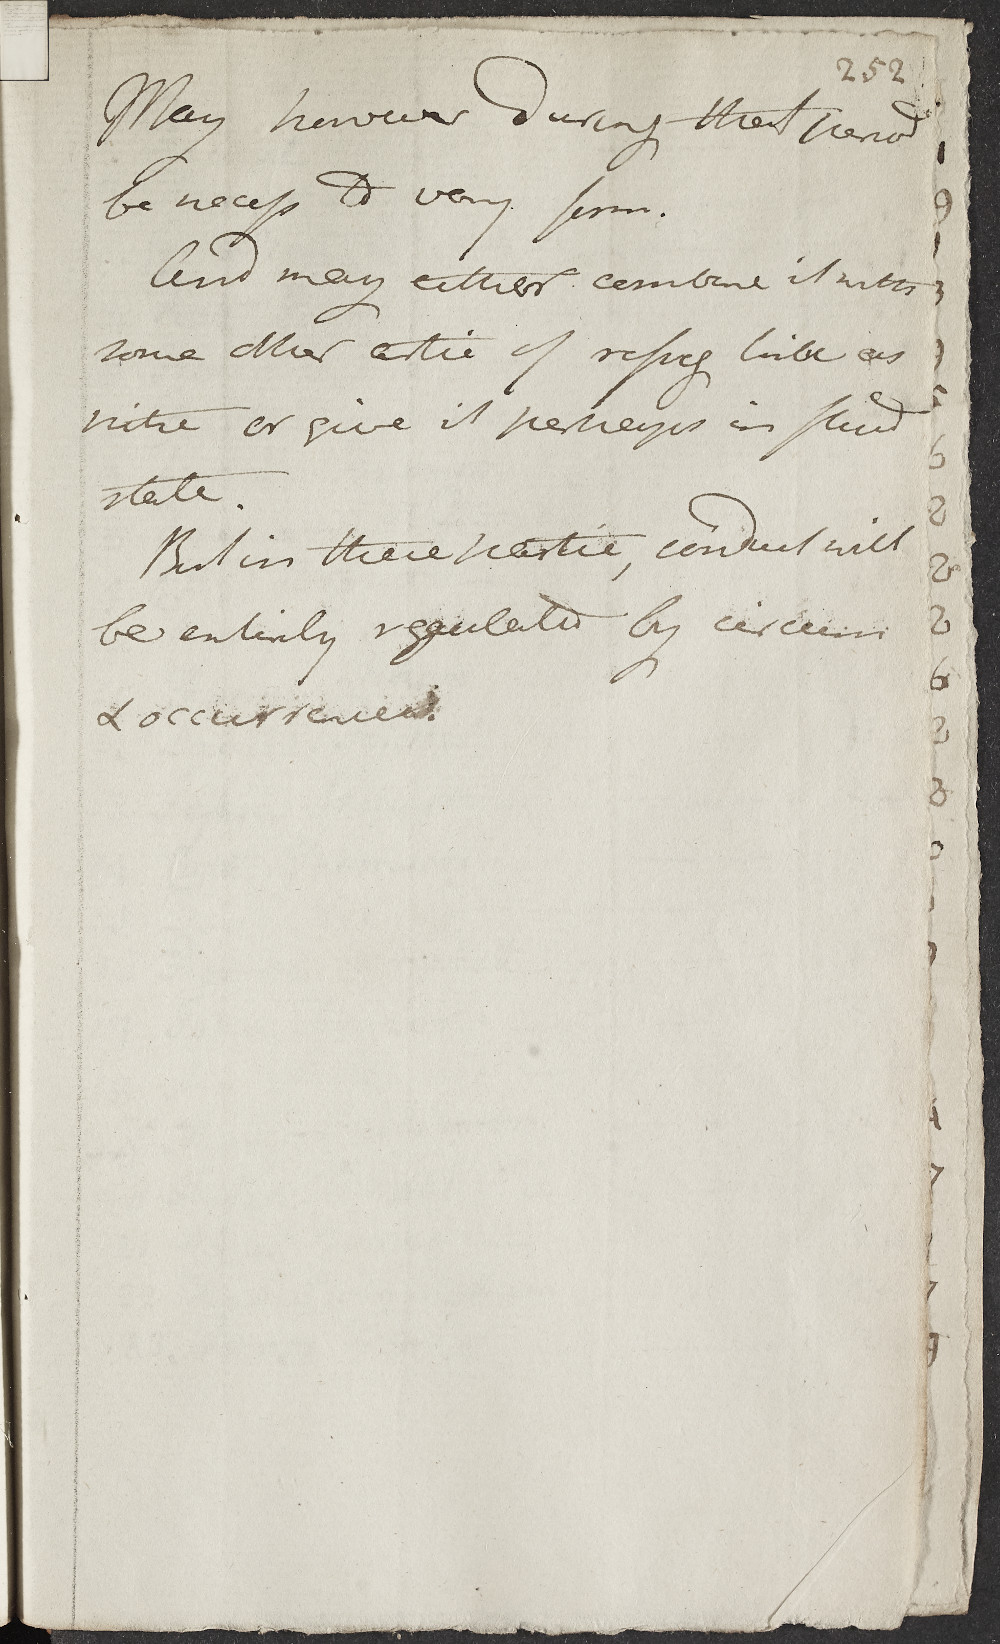 252
May however During that period
be necess to vary form.
And may either combine it with
some other artie of refrig kind as
nitre or give it perhaps in fluid
state.
But in these partic, conduct will
be entirely regulated by circum
& occurrences.